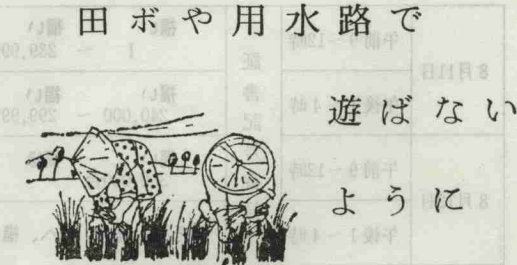 田ボや用水路で
遊ばない
ように